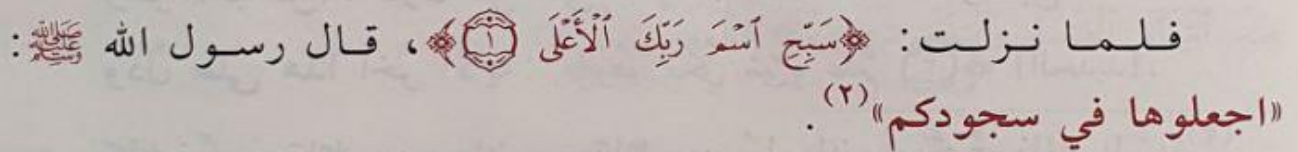 فلما نزلت: ﴿سَبِّحِ ٱسْمَ رَبِّكَ ٱلْأَعْلَى ١﴾، قال رسول الله ﷺ:
«اجعلوها في سجودكم»(٢).